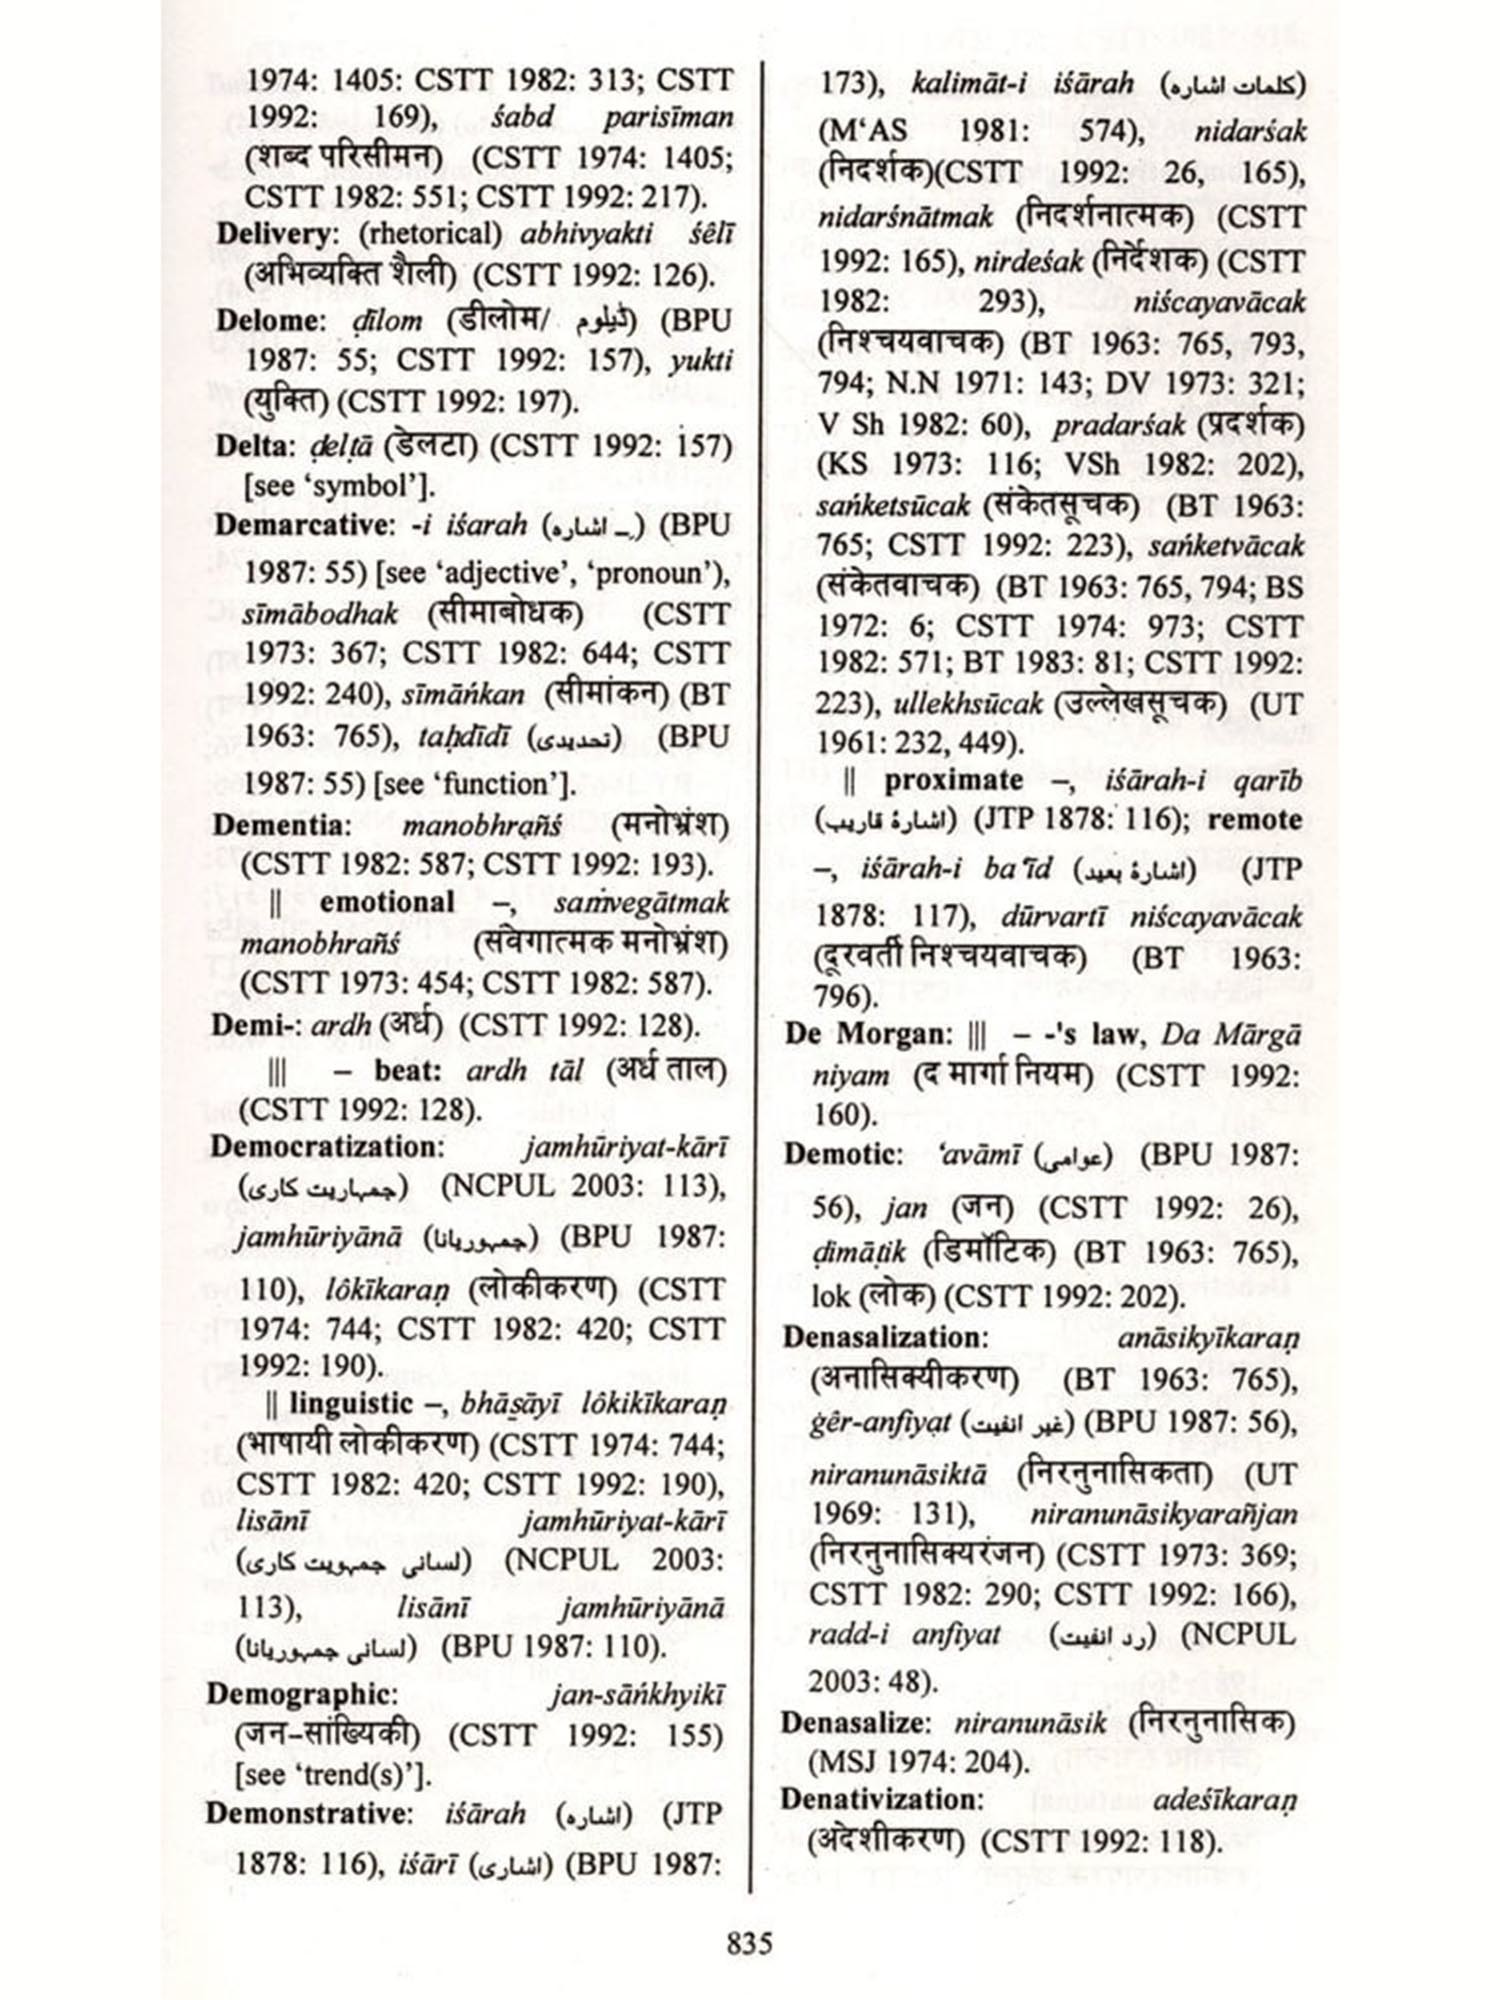 1974: 1405: CSTT 1982: 313; CSTT
1992: 169), śabd parisīman
(शब्द परिसीमन) (CSTT 1974: 1405;
CSTT 1982: 551; CSTT 1992: 217).
Delivery: (rhetorical) abhivyakti śêlī
(अभिव्यक्ति शैली) (CSTT 1992: 126).
Delome: ḍīlom (डीलोम/ ڈیلوم) (BPU
1987: 55; CSTT 1992: 157), yukti
(युक्ति) (CSTT 1992: 197).
Delta: ḍelṭā (डेलटा) (CSTT 1992: 157)
[see ‘symbol’].
Demarcative: -i iśarah (ـ اشارہ) (BPU
1987: 55) [see ‘adjective’, ‘pronoun’),
sīmābodhak (सीमाबोधक) (CSTT
1973: 367; CSTT 1982: 644; CSTT
1992: 240), sīmāṅkan (सीमांकन) (BT
1963: 765), taḥdīdī (تحدیدی) (BPU
1987: 55) [see ‘function’].
Dementia: manobhrañś (मनोभ्रंश)
(CSTT 1982: 587; CSTT 1992: 193).
|| emotional –, saṁvegātmak
manobhrañś (संवेगात्मक मनोभ्रंश)
(CSTT 1973: 454; CSTT 1982: 587).
Demi-: ardh (अर्ध) (CSTT 1992: 128).
||| – beat: ardh tāl (अर्ध ताल)
(CSTT 1992: 128).
Democratization: jamhūriyat-kārī
(جمہاریت کاری) (NCPUL 2003: 113),
jamhūriyānā (جمہوریانا) (BPU 1987:
110), lôkīkaraṇ (लोकीकरण) (CSTT
1974: 744; CSTT 1982: 420; CSTT
1992: 190).
|| linguistic –, bhāṣāyī lôkikīkaraṇ
(भाषायी लोकीकरण) (CSTT 1974: 744;
CSTT 1982: 420; CSTT 1992: 190),
lisānī jamhūriyat-kārī
(لسانی جمہویت کاری) (NCPUL 2003:
113), lisānī jamhūriyānā
(لسانی جمہوریانا) (BPU 1987: 110).
Demographic: jan-sāṅkhyikī
(जन-सांख्यिकी) (CSTT 1992: 155)
[see ‘trend(s)’].
Demonstrative: iśārah (اشارہ) (JTP
1878: 116), iśārī (اشاری) (BPU 1987:
173), kalimāt-i iśārah (کلمات اشارہ)
(M‘AS 1981: 574), nidarśak
(निदर्शक)(CSTT 1992: 26, 165),
nidarśnātmak (निदर्शनात्मक) (CSTT
1992: 165), nirdeśak (निर्देशक) (CSTT
1982: 293), niścayavācak
(निश्चयवाचक) (BT 1963: 765, 793,
794; N.N 1971: 143; DV 1973: 321;
V Sh 1982: 60), pradarśak (प्रदर्शक)
(KS 1973: 116; VSh 1982: 202),
saṅketsūcak (संकेतसूचक) (BT 1963:
765; CSTT 1992: 223), saṅketvācak
(संकेतवाचक) (BT 1963: 765, 794; BS
1972: 6; CSTT 1974: 973; CSTT
1982: 571; BT 1983: 81; CSTT 1992:
223), ullekhsūcak (उल्लेखसूचक) (UT
1961: 232, 449).
|| proximate –, iśārah-i qarīb
(اشارۂ قاریب) (JTP 1878: 116); remote
–, iśārah-i ba‘īd (اشارۂ بعید) (JTP
1878: 117), dūrvartī niścayavācak
(दूरवर्ती निश्चयवाचक) (BT 1963:
796).
De Morgan: ||| – -'s law, Da Mārgā
niyam (द मार्गा नियम) (CSTT 1992:
160).
Demotic: ‘avāmī (عوامی) (BPU 1987:
56), jan (जन) (CSTT 1992: 26),
ḍimāṭik (डिमॉटिक) (BT 1963: 765),
lok (लोक) (CSTT 1992: 202).
Denasalization: anāsikyīkaraṇ
(अनासिक्यीकरण) (BT 1963: 765),
ġêr-anfiyat (غیر انفیت) (BPU 1987: 56),
niranunāsiktā (निरनुनासिकता) (UT
1969: 131), niranunāsikyarañjan
(निरनुनासिक्यरंजन) (CSTT 1973: 369;
CSTT 1982: 290; CSTT 1992: 166),
radd-i anfiyat (رد انفیت) (NCPUL
2003: 48).
Denasalize: niranunāsik (निरनुनासिक)
(MSJ 1974: 204).
Denativization: adeśīkaraṇ
(अदेशीकरण) (CSTT 1992: 118).
835